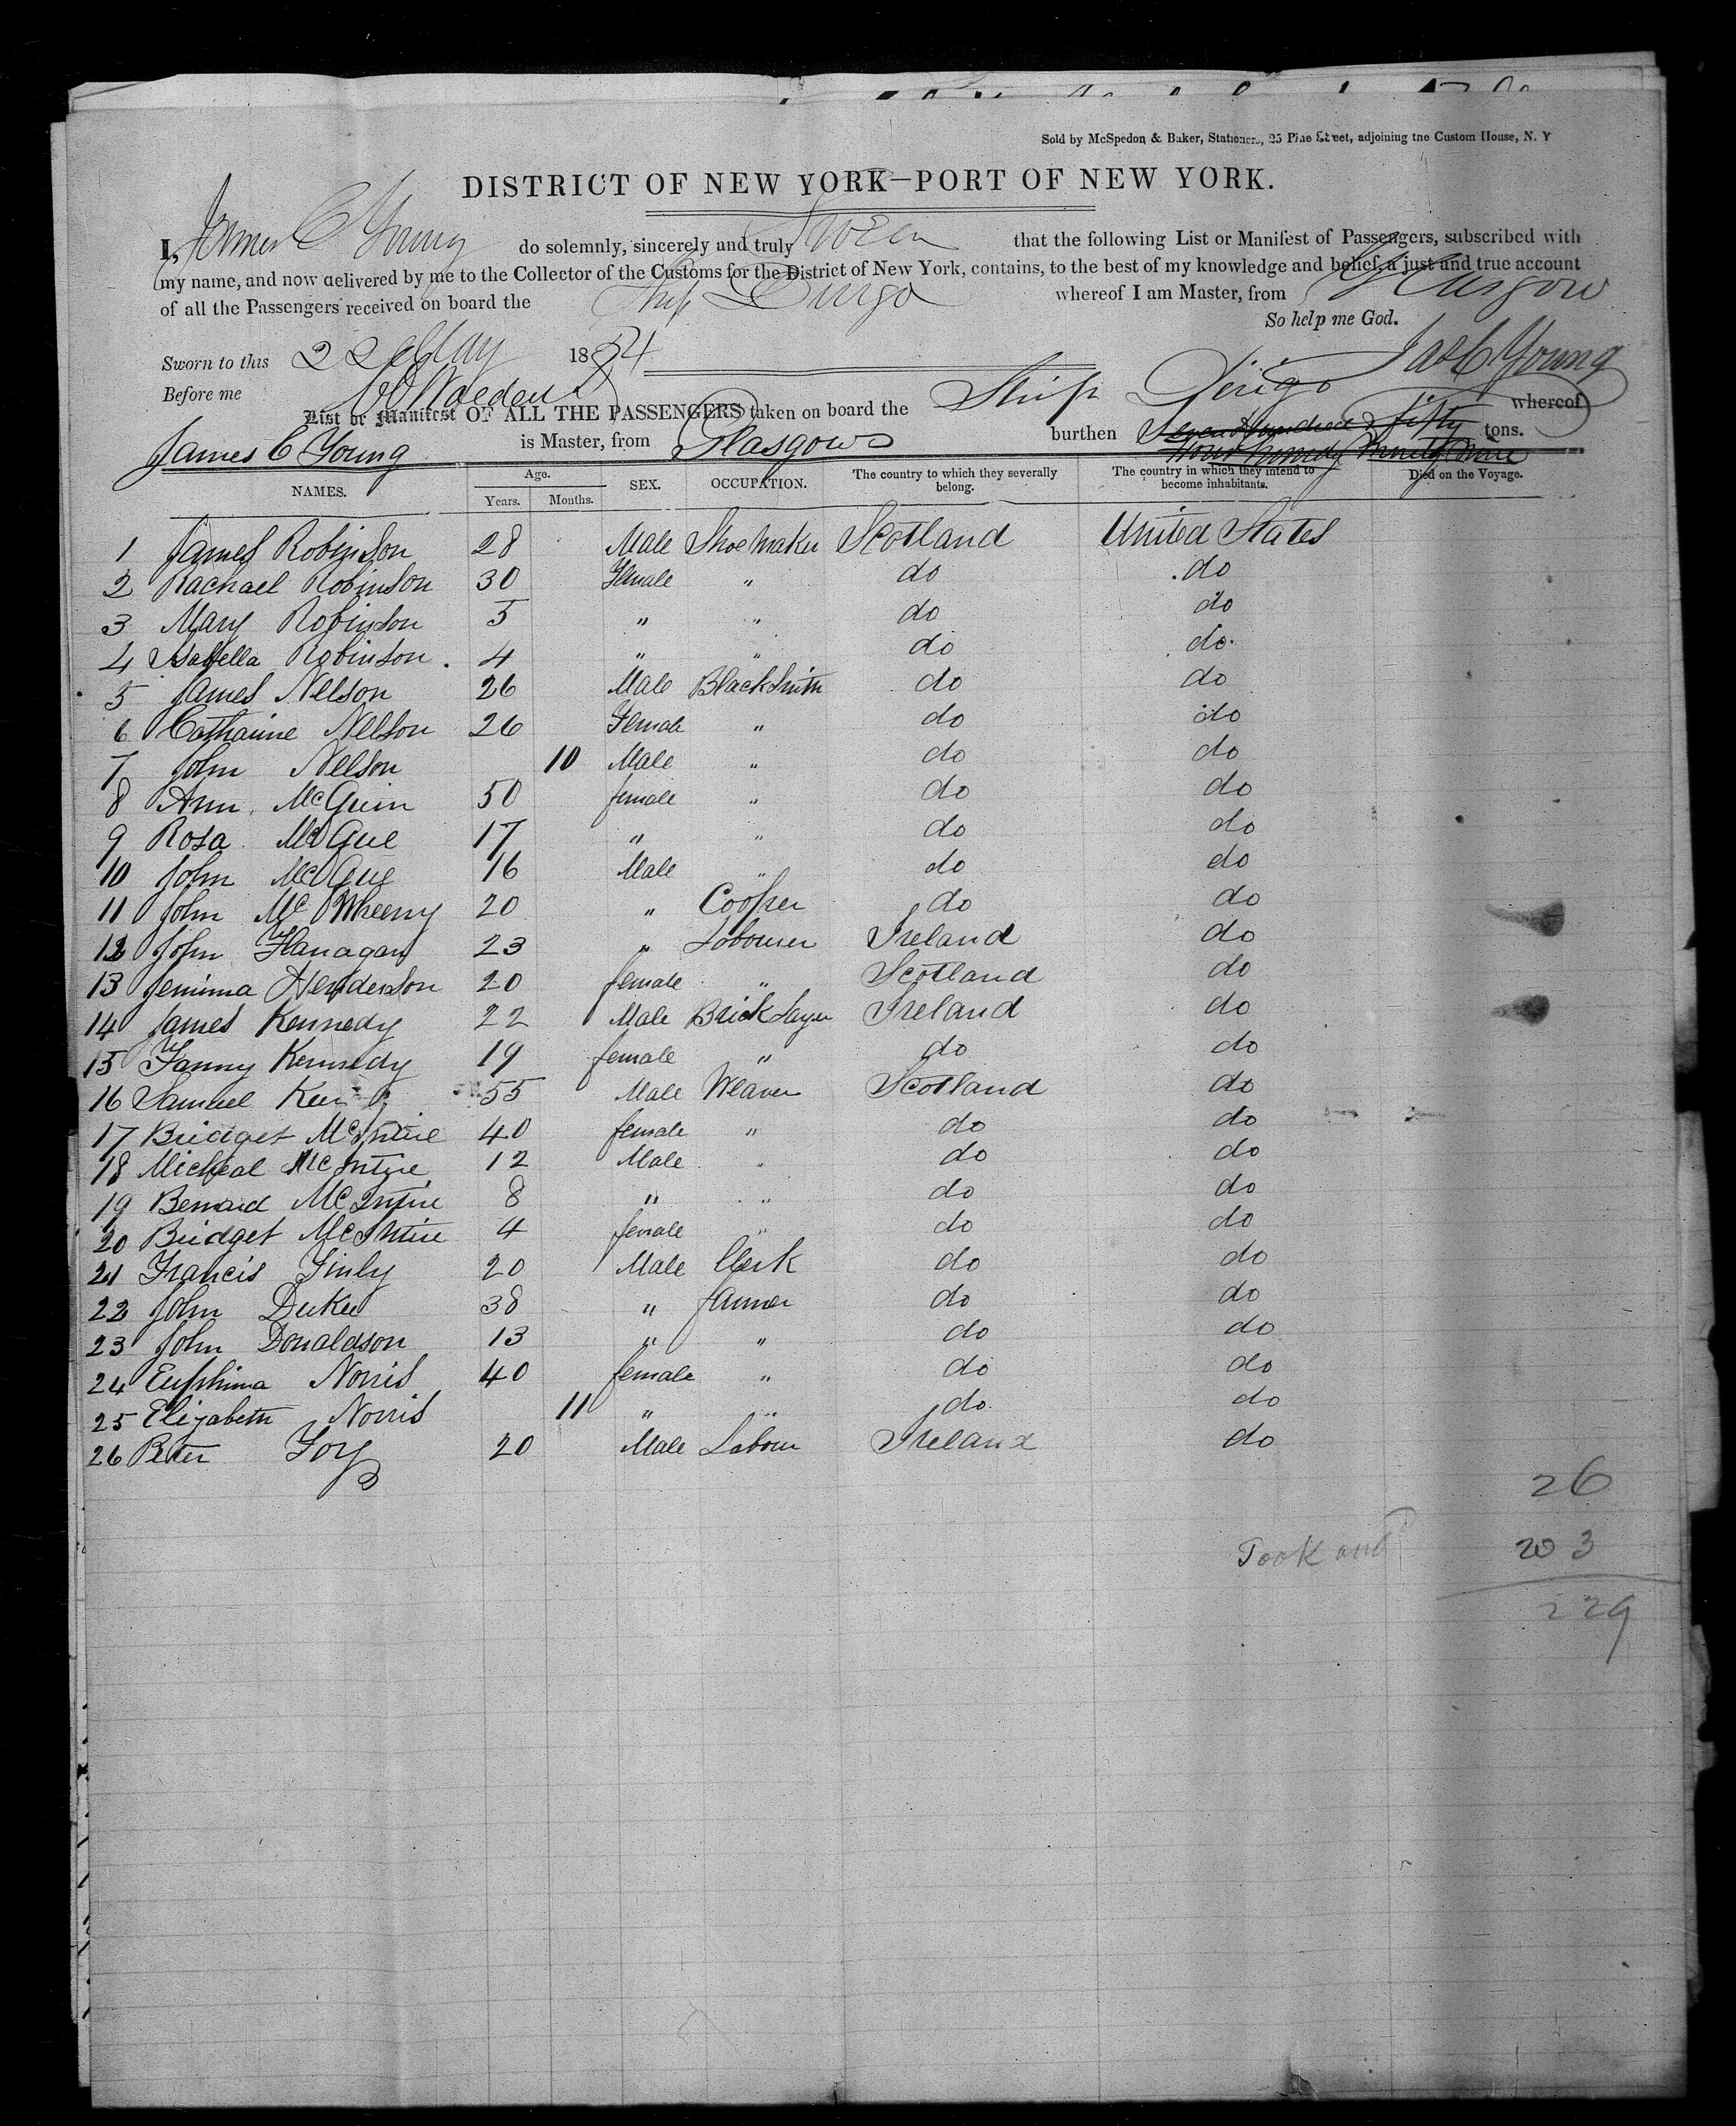 Sold by McSpedon & Baker, Stationers, 25 Pine Street, adjoining the Custom House, N. Y
DISTRICT OF NEW YORK—PORT OF NEW YORK.
I, James C Young do solemnly, sincerely and truly Swear that the following List or Manifest of Passengers, subscribed with
my name, and now delivered by me to the Collector of the Customs for the District of New York, contains, to the best of my knowledge and belief, a just and true account
of all the Passengers received on board the Ship Dirigo whereof I am Master, from Glasgow
So help me God.
Sworn to this 22 May 1854 Jas C Young
Before me
List or Manifest OF ALL THE PASSENGERS taken on board the Ship Dirigo whereof
James C Young is Master, from Glasgow burthen Seven Hundred & fifty tons.
NAMES. Age. Years. Months. SEX. OCCUPATION. The country to which they severally belong. The country in which they intend to become inhabitants. Died on the Voyage.
1 James Robinson 28 Male Shoe Maker Scotland United States
2 Rachael Robinson 30 Female " do do
3 Mary Robinson 5 " " do do
4 Isabella Robinson 4 " " do do
5 James Nelson 26 Male BlackSmith do do
6 Catharine Nelson 26 Female " do do
7 John Nelson 10 Male " do do
8 Ann McGuin 50 female " do do
9 Rosa McGue 17 " " do do
10 John McGue 16 Male " do do
11 John Mc Wheeny 20 " Cooper do do
12 John Flanagan 23 " Labourer Ireland do
13 Jemima Henderson 20 female " Scotland do
14 James Kennedy 22 Male Brick Layer Ireland do
15 Fanny Kennedy 19 female " do do
16 Samuel 55 Male Weaver Scotland do
17 Bridget McIntire 40 female " do do
18 Micheal McIntire 12 Male " do do
19 Bernard McIntire 8 " " do do
20 Bridget McIntire 4 female " do do
21 Francis Finly 20 Male Clerk do do
22 John Duke 38 " farmer do do
23 John Donaldson 13 " " do do
24 Euphima Norris 40 female " do do
25 Elizabeth Norris 11 " " do do
26 Peter Foy 20 Male Labour Ireland do
26
Took out 203
229